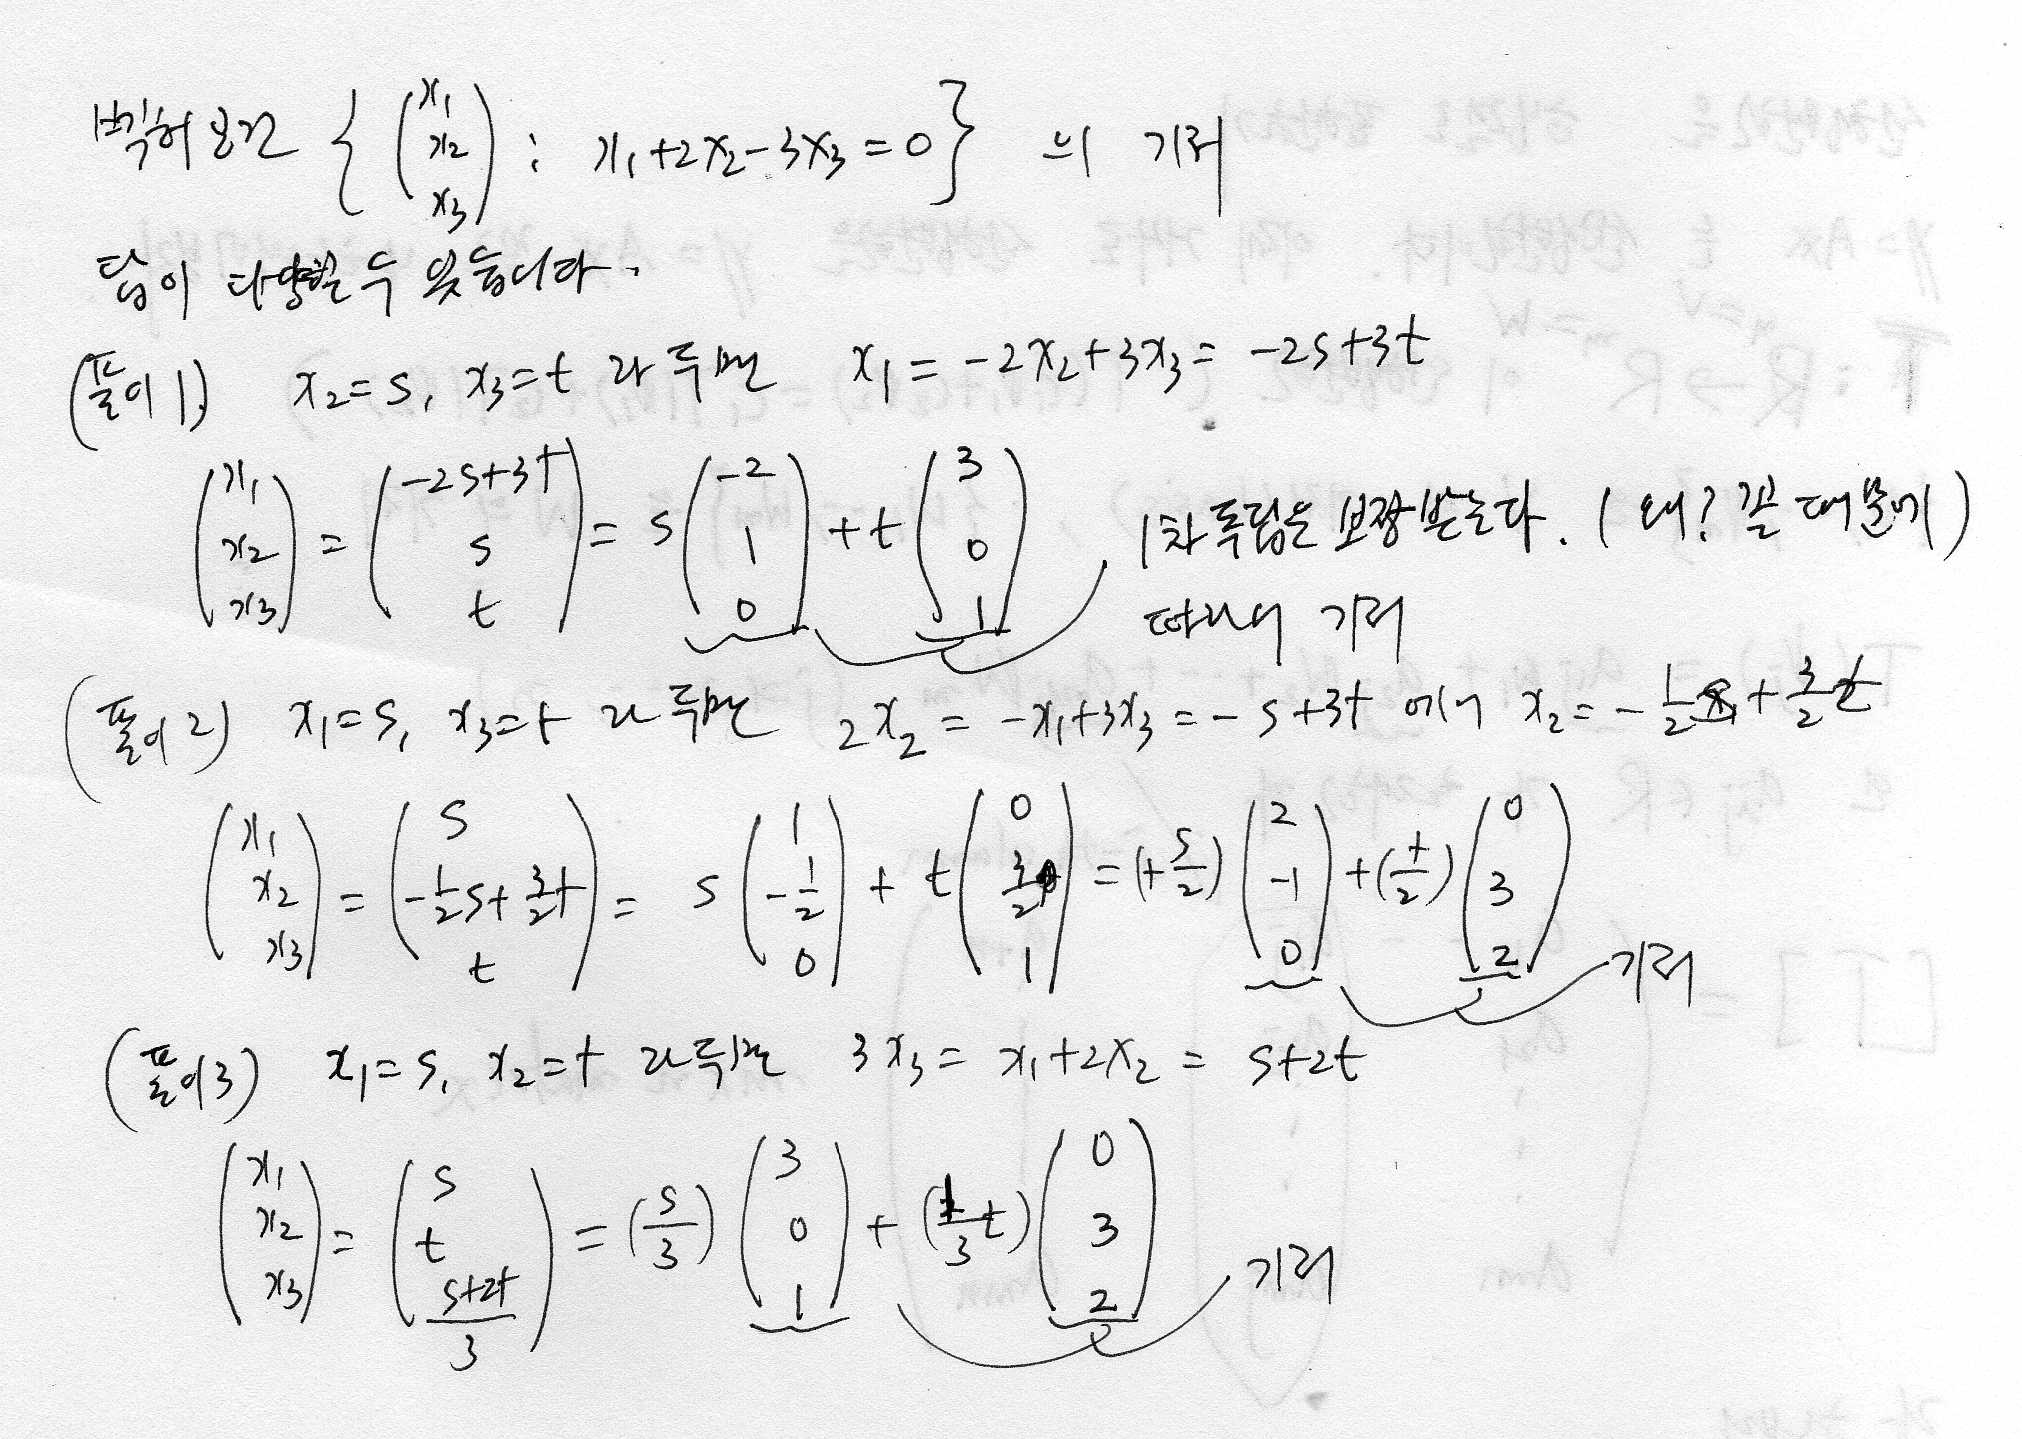 벡터공간 { (x₁ x₂ x₃) : x₁+2x₂-3x₃=0 } 의 기저
답이 다양할 수 있습니다.
(풀이 1) x₂=s, x₃=t 라 두면 x₁ = -2x₂+3x₃ = -2s+3t
(x₁ x₂ x₃) = (-2s+3t s t) = s(-2 1 0) + t(3 0 1) 1차 독립은 보장 받는다. (왜? 꼴 때문에)
따라서 기저
(풀이 2) x₁=s, x₃=t 라 두면 2x₂ = -x₁+3x₃ = -s+3t 에서 x₂ = -1/2 s + 3/2 t
(x₁ x₂ x₃) = (s -1/2 s+3/2 t t) = s(1 -1/2 0) + t(0 3/2 1) = (+s/2)(2 -1 0) + (t/2)(0 3 2) 기저
(풀이 3) x₁=s, x₂=t 라 두면 3x₃ = x₁+2x₂ = s+2t
(x₁ x₂ x₃) = (s t (s+2t)/3) = (s/3)(3 0 1) + (1/3 t)(0 3 2) 기저